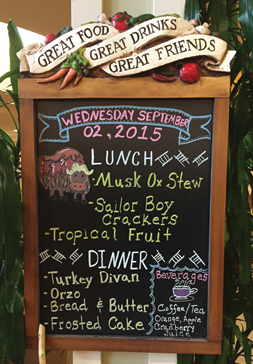 GREAT FOOD
GREAT DRINKS
GREAT FRIENDS
WEDNESDAY SEPTEMBER
02, 2015
LUNCH
- Musk Ox Stew
- Sailor Boy
Crackers
- Tropical Fruit
DINNER
- Turkey Divan
- Orzo
- Bread & Butter
- Frosted Cake
Beverages
Coffee/Tea,
Orange, Apple
Cranberry
Juice